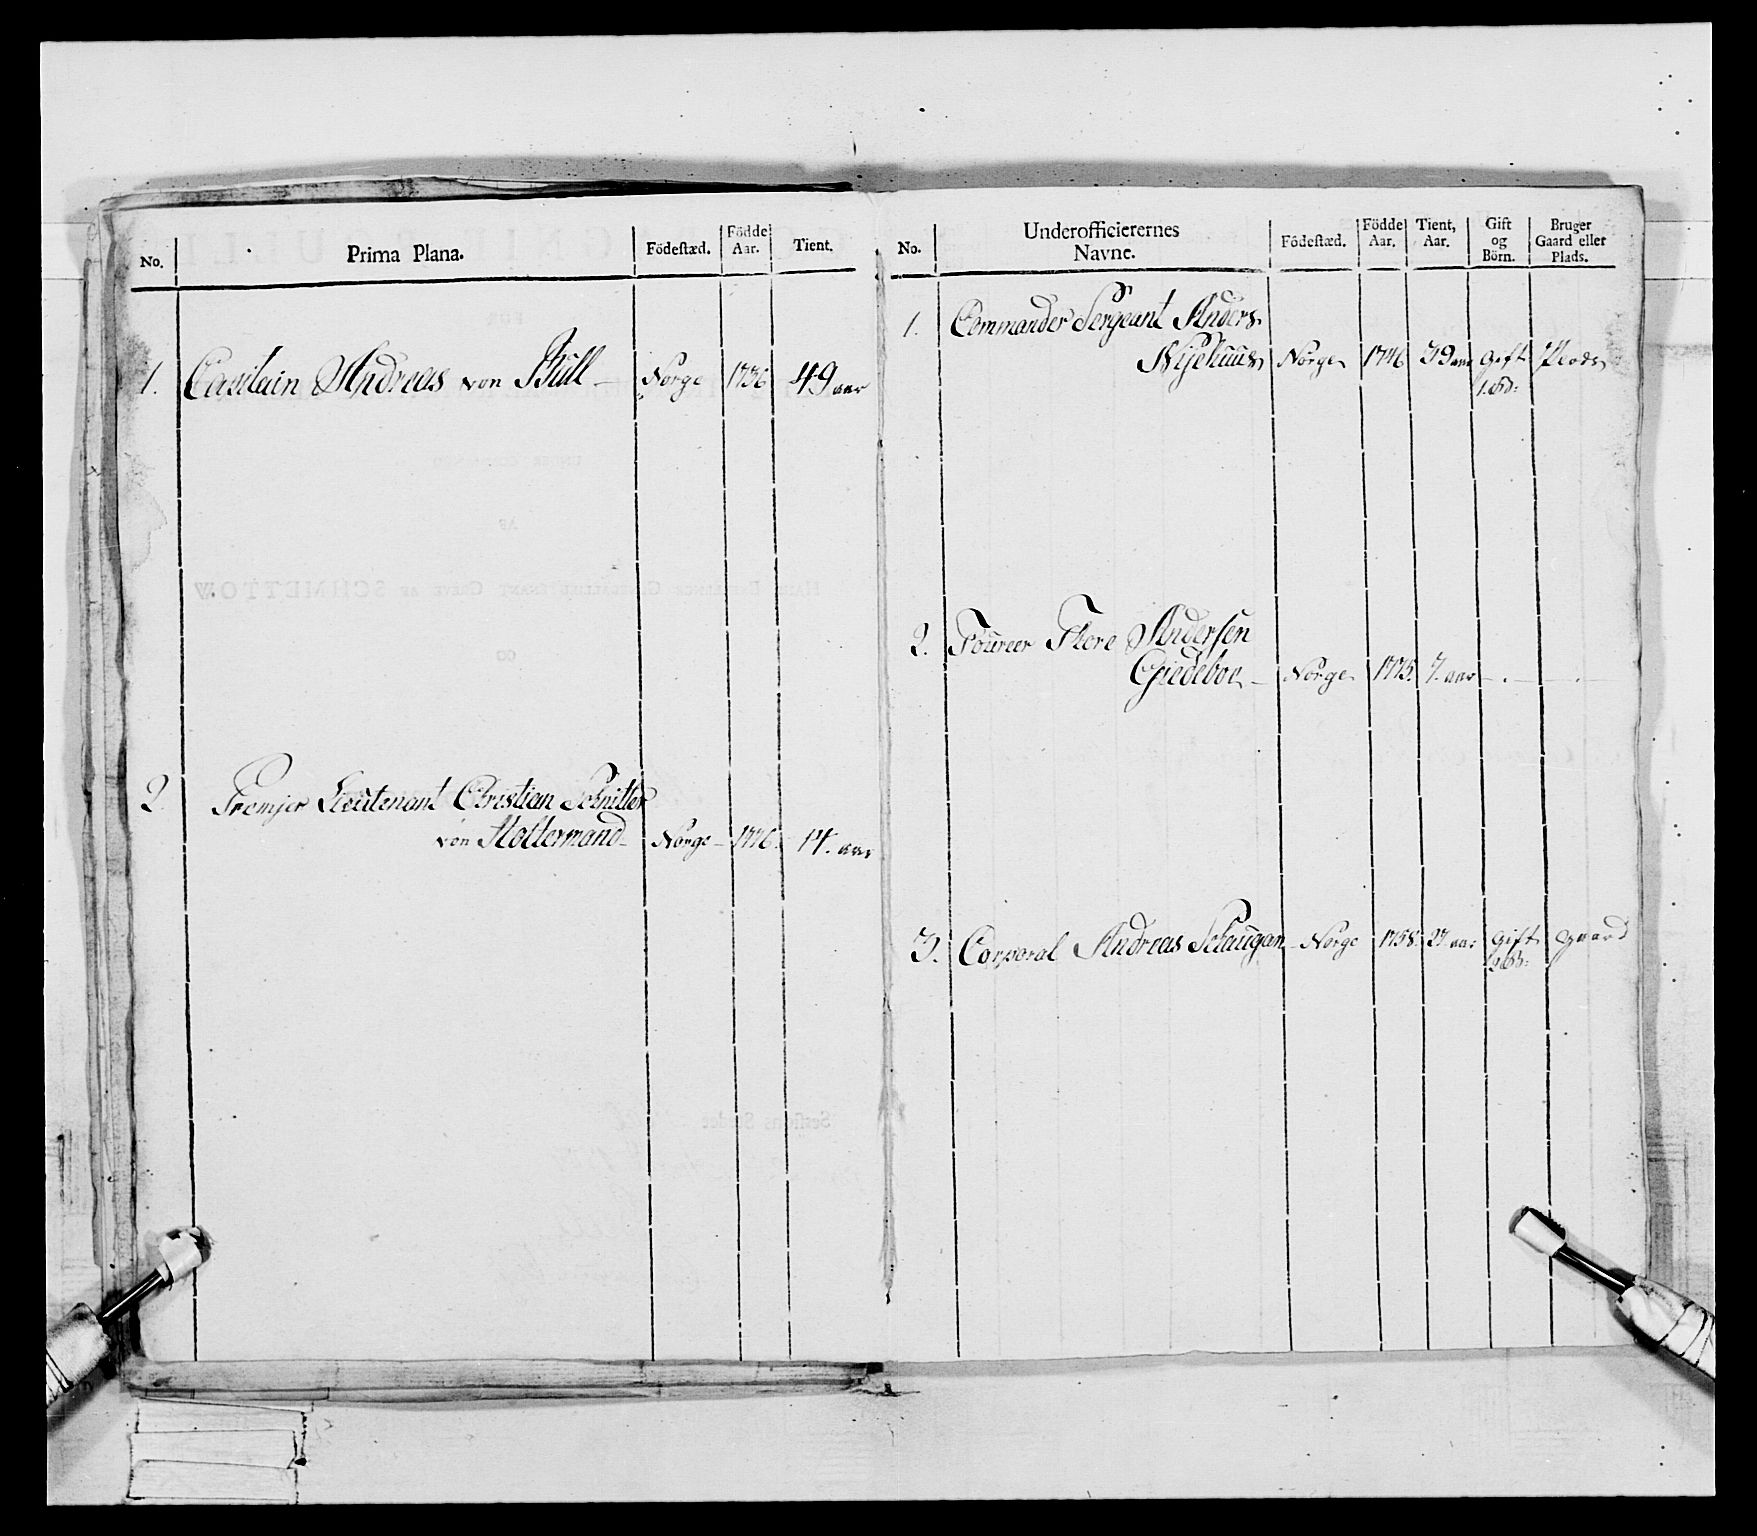 No.
Prima Plana.
Födestæd.
Födde Aar.
Tient.
1. Capitain Andreas von Bull – Norge 1736 49 aar
2. Premjer Lieutenant Christian Schnitler
von Stoltermand – Norge – 1776. 14. aar
No.
Underofficierernes
Navne.
Födestæd.
Födde Aar.
Tient, Aar.
Gift og Börn.
Bruger Gaard eller Plads.
1. Commander Sergeant Anders
Nyehuus Norge 1746 39 aar Gift Plads
1. Bd:
2. Foureer Thore Andersen
Giedeboe – Norge 1775. 7. aar – . – .
3. Corporal Andreas Schaugan – Norge 1758. 27 aar Gift gaard